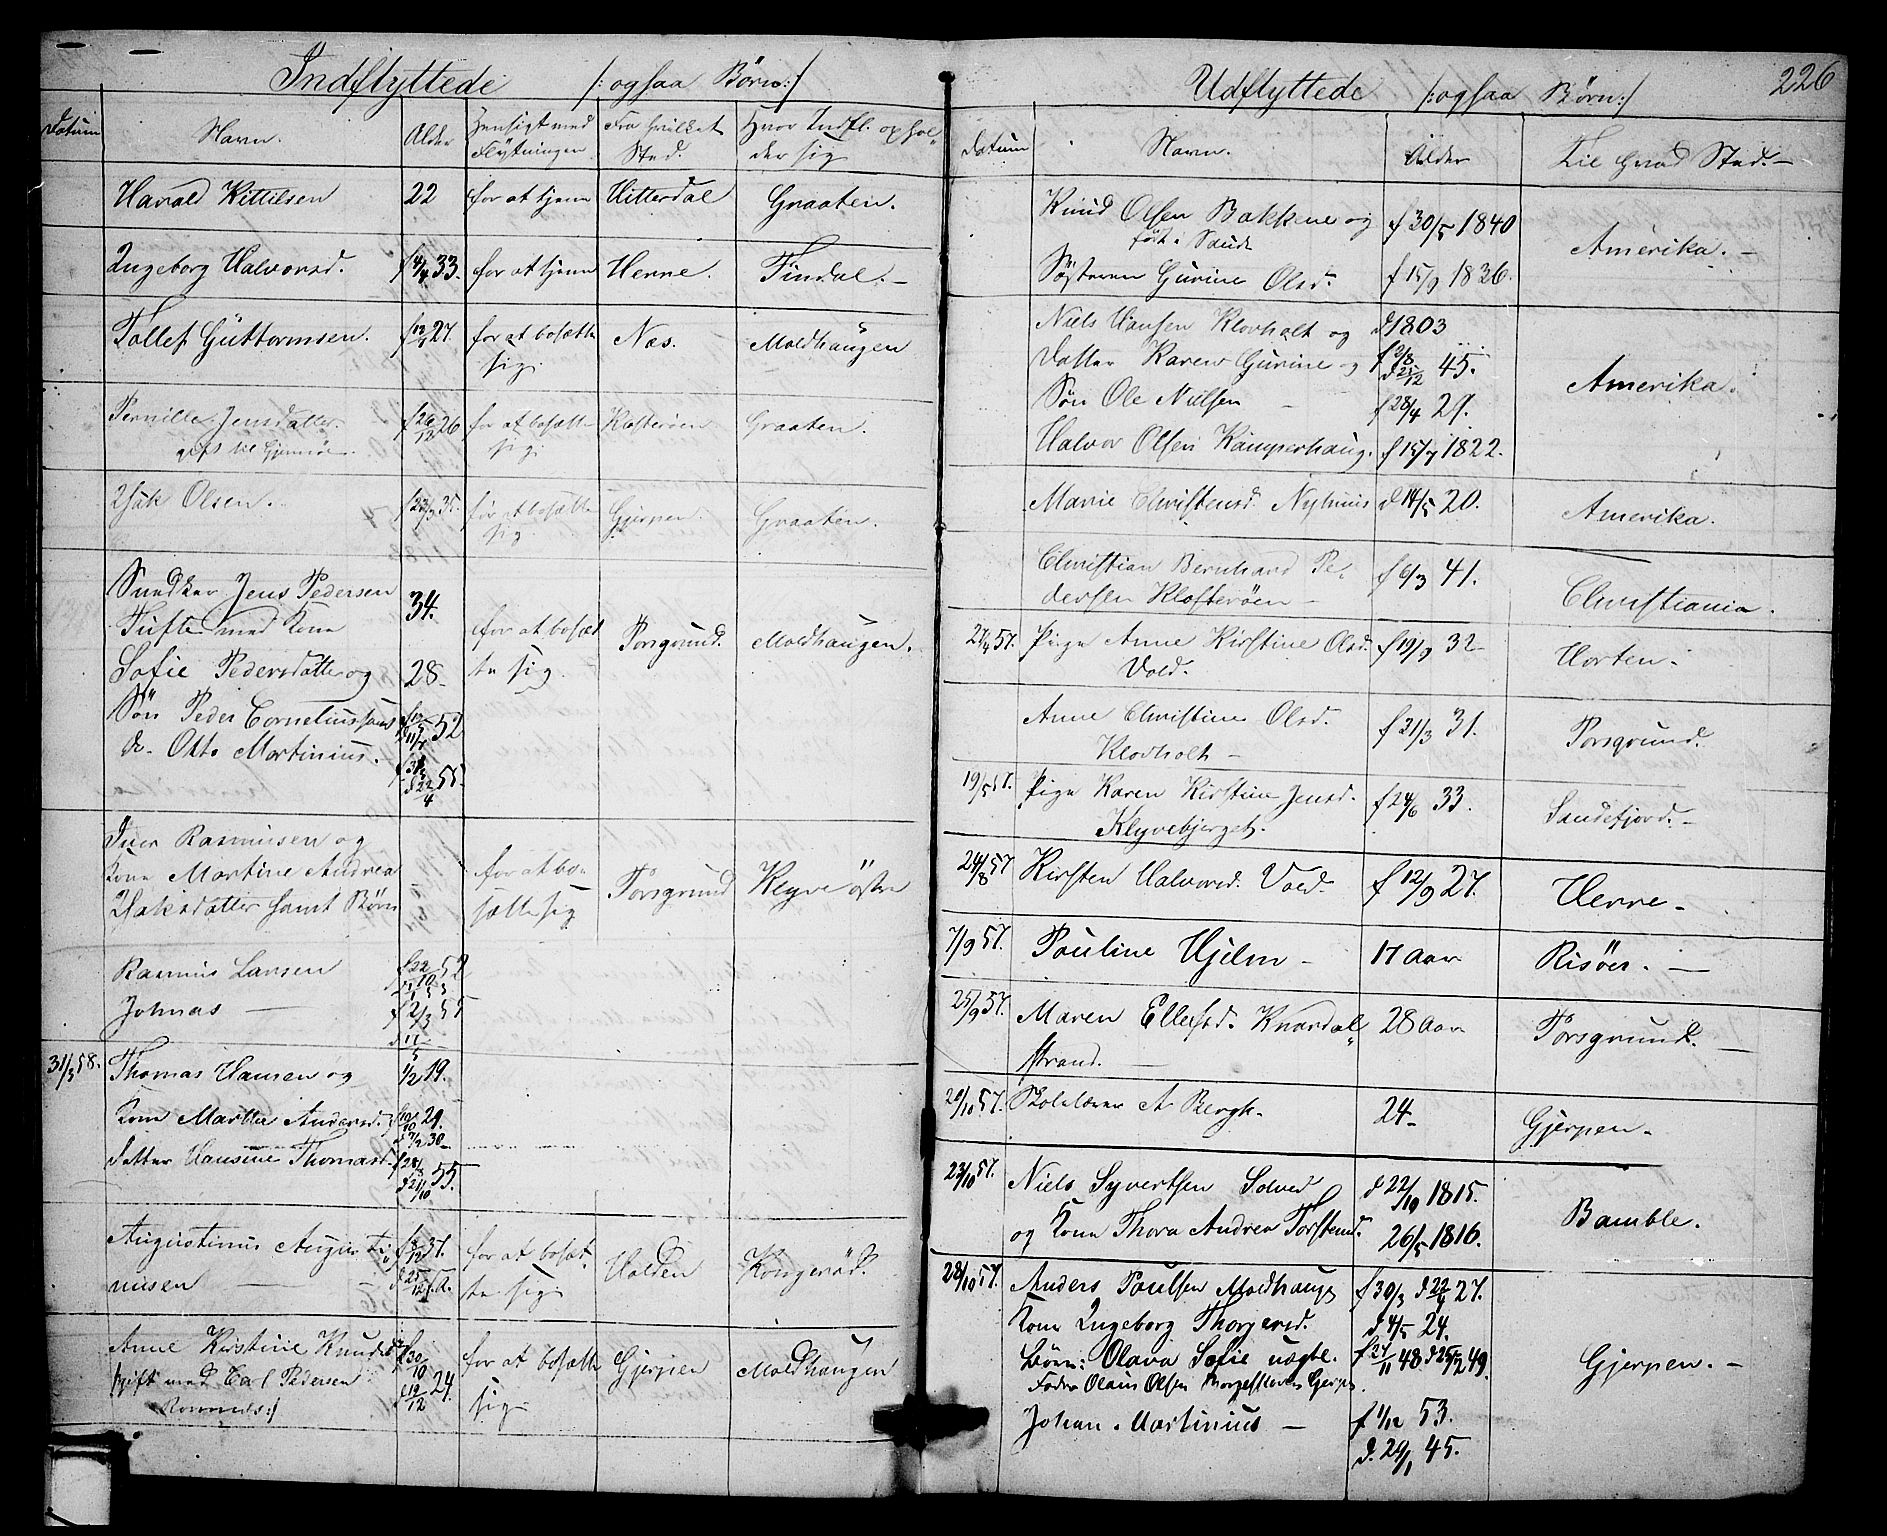 Indflyttede /: ogsaa Børn :/
Datum Navn. Alder Hensigt med Flytningen Fra hvilket Sted. Hvor Indfl. ophol- der sig
Harald Kittilsen 22 for at tjene Hitterdal Graaten.
Ingeborg Halvorsd. 33. for at tjene Herre. Findal. -
Tollef Guttormsen. 27. for at bosætte Næs. Moldhaugen
sig.
Pernille Jensdatter f 26/12 26 for at bosætte Klosterøen Graaten.
gift til Gjemsøe sig.
Isak Olsen. f 23/3 35. for at bosætte Gjerpen. Graaten.
sig.
Jens Pedersen 34.
Tufte med Kone for at bosæt Porsgrund. Moldhaugen.
Sofie Pedersdatter og 28 - te sig.
Søn Peder Cornelius samt 52
do. Otto Martinius. 55.
d 22/4
Iver Rasmusen og
Kone Martine Andrea for at bo- Porsgrund Klyve østre
Isaksdatter samt Børn sætte sig
Rasmus Lansen f 22/10 52
Johnas - f 2/3 55
31/3 58. Thomas Hansen og 1/2 19.
Kone Marthe Andersd. 29.
30 -
Datter Hansine Thomasd. 55.
d 21/10
Augustinus Augusti- 37. for at bosæt- Holden Kongerød.
nusen - d 25/12 te sig
Anne Kirstine Knudsd. f 30/10 for at bosætte Gjerpen Moldhaugen
/: gift med Carl Pedersen d 19/12 24. sig
:/
Udflyttede /: ogsaa Børn :/ 226
Datum Navn. Alder Til hvad Sted. -
Knud Olsen Bakkene og f 30/5 1840
født i Saude Amerika. -
Søsteren Gurine Olsd. f 15/9 1836.
Niels Hansen Klovholt og d 1803
Datter Karen Gurine og f 2/8 45. Amerika.
d 25/12
Søn Ole Nielsen - f 28/4 29.
Halvor Olsen Kamperhaug. f 15/7 1822.
Marie Christensd. Nyhuus d 14/5 20. Amerika.
Christian Bernhard Pe- f 6/3 41. Christiania.
dersen Klosterøen -
57. Pige Anne Kirstine Olsd. f 19/9 32 - Horten.
Vold.
Anne Christine Olsd. f 21/3 31. Porsgrund.
Klovholt -
19/5 57. Pige Karen Kirstine Jensd. f 24/6 33. Sandefjord. -
Klyvebjerget.
24/8 57 Kirsten Halvorsd. Vold. f 12/9 27. Herre -
7/9 57. Pauline Hjelm - 17 Aar Risöer. -
25/9 57. Maren Ellefsd. Knardal 28 Aar Porsgrund. -
strand. -
57. A Bergh. 24 - Gjerpen -
23/10 57. Niels Syvertsen Solved d 22/10 1815. Bamble.
og Kone Thora Andrea Torstensd. 26/5 1816.
28/10 57. Anders Poulsen Moldhaug f 30/3 d 22/4 27.
Kone Ingeborg Thorgersd. d 4/5 24.
Børn: Olava Sofie uægte. f 27/11 48 49. Gjerpen. -
Fader Olaus Olsen Gjerpen
Johan Martinius - f 1/12 53.
45.